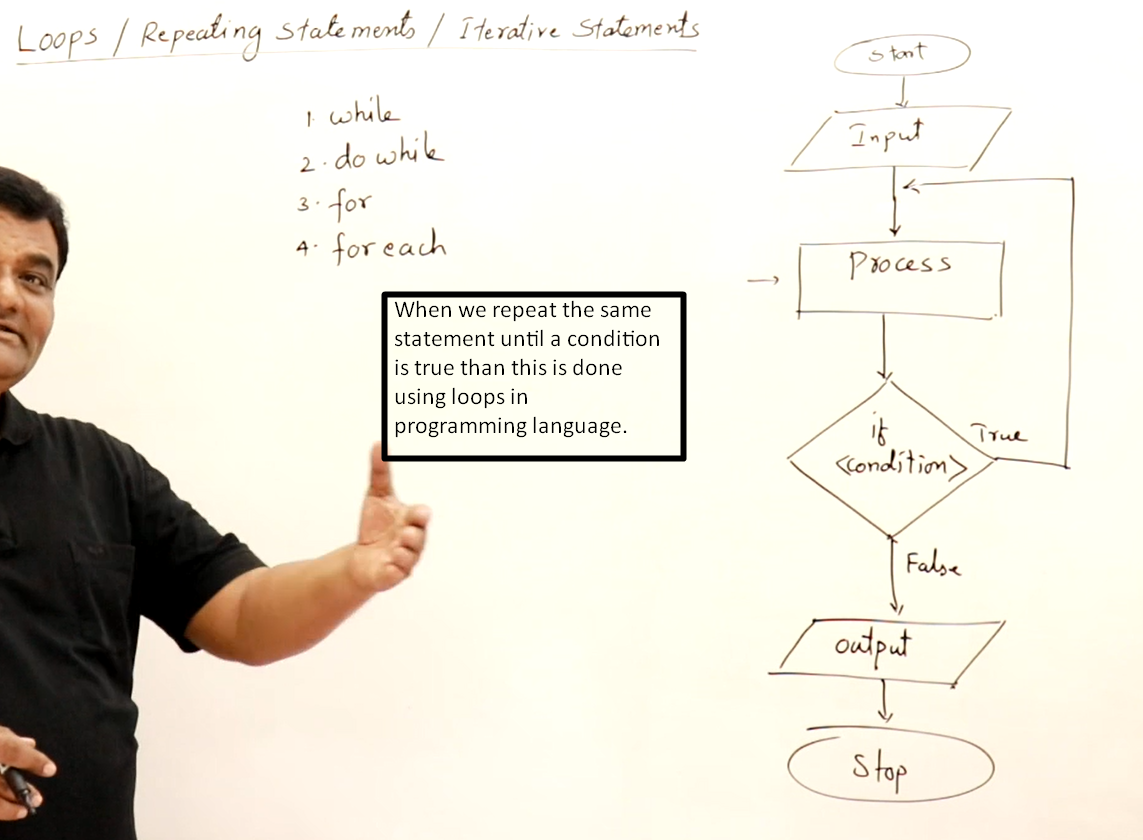 Loops / Repeating Statements / Iterative Statements
1. while
2. do while
3. for
4. for each
When we repeat the same
statement until a condition
is true than this is done
using loops in
programming language.
Start
Input
Process
if
<condition>
True
False
output
Stop